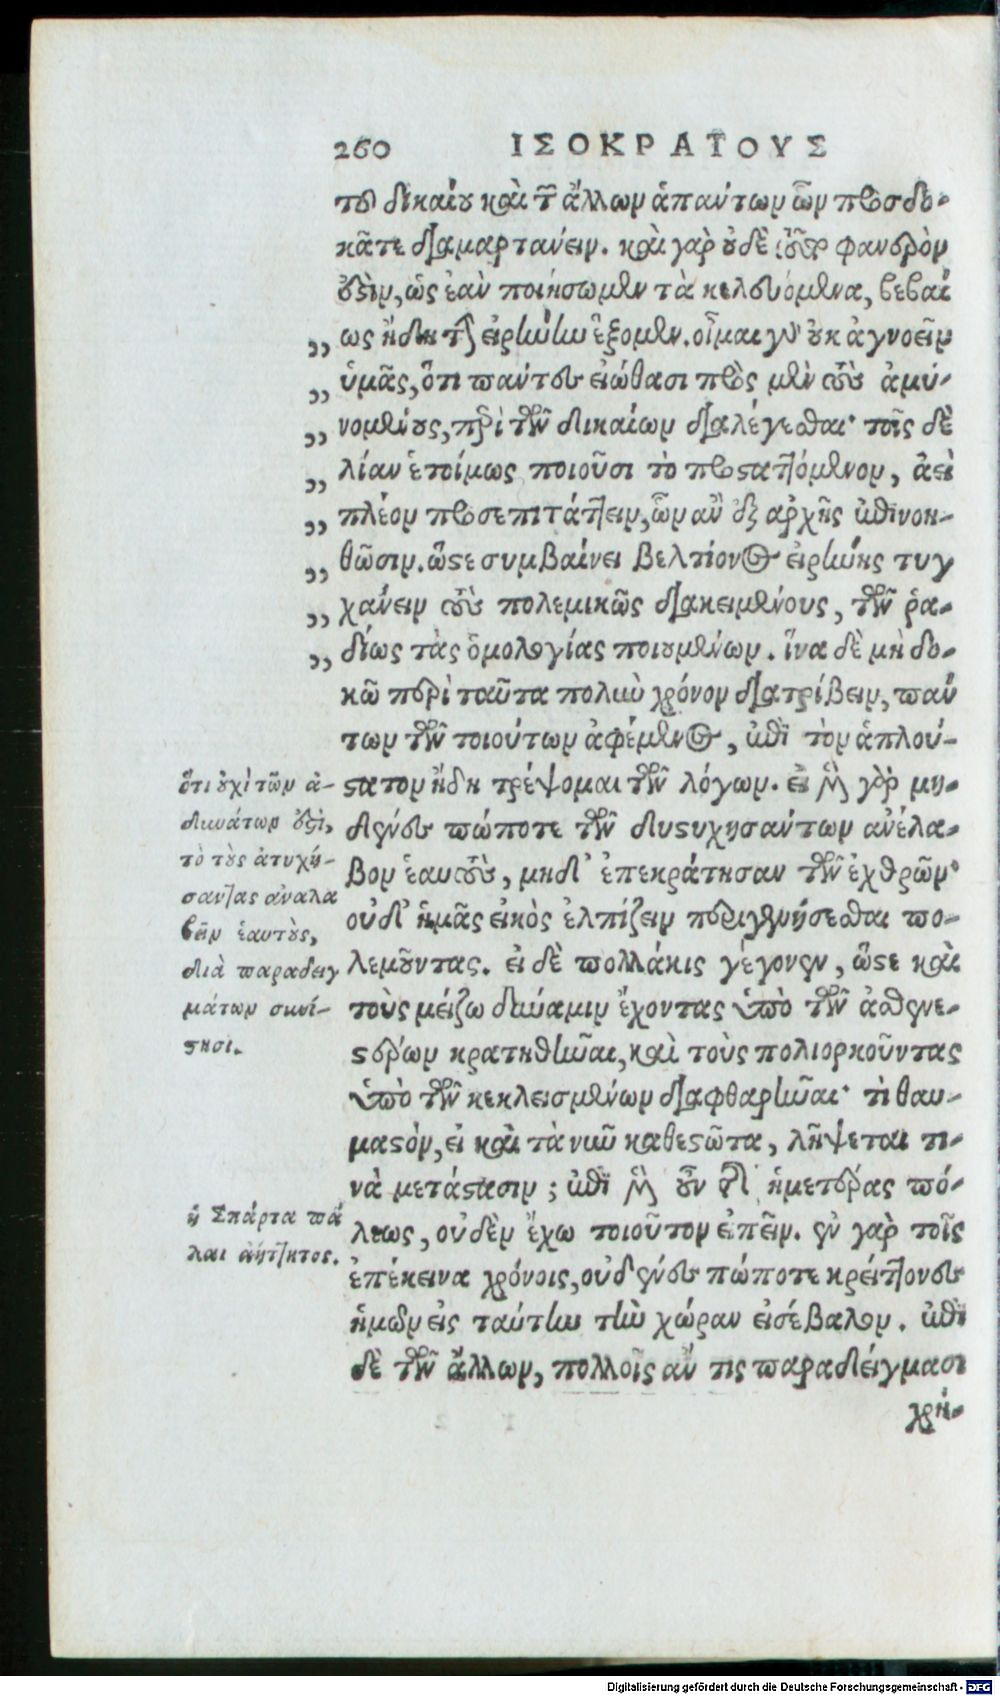 260 ΙΣΟΚΡΑΤΟΥΣ
τοῦ δικαίου καὶ τῶν ἄλλων ἁπάντων ὧν προσδο-
κᾶτε διαμαρτάνειν. καὶ γὰρ οὐδὲ τοῦτο φανερόν
ἐστιν, ὡς ἐὰν ποιήσωμεν τὰ κελευόμενα, βεβαί
,, ως ἤδη τὴν εἰρήνην ἕξομεν. οἶμαι γὰρ οὐκ ἀγνοεῖν
,, ὑμᾶς, ὅτι πάντες εἰώθασι πρὸς μὲν τοὺς ἀμυ-
,, νομένους, περὶ τῶν δικαίων διαλέγεσθαι· τοῖς δὲ
,, λίαν ἑτοίμως ποιοῦσι τὸ προσταττόμενον, ἀεὶ
,, πλέον προσεπιτάττειν, ὧν ἂν ἐξ ἀρχῆς ἐπινοη-
,, θῶσιν. ὥστε συμβαίνει βελτίονος εἰρήνης τυγ
,, χάνειν τοὺς πολεμικῶς διακειμένους, τῶν ῥα-
,, δίως τὰς ὁμολογίας ποιουμένων. ἵνα δὲ μὴ δο-
κῶ περὶ ταῦτα πολὺν χρόνον διατρίβειν, πάν
των τῶν τοιούτων ἀφέμενος, ἐπὶ τὸν ἁπλού-
στατον ἤδη τρέψομαι τῶν λόγων. εἰ μὲν γὰρ μη-
δένες πώποτε τῶν δυστυχησάντων ἀνέλα-
βον ἑαυτοὺς, μηδ' ἐπεκράτησαν τῶν ἐχθρῶν·
οὐδ' ἡμᾶς εἰκὸς ἐλπίζειν περιγενήσεσθαι πο-
λεμοῦντας. εἰ δὲ πολλάκις γέγονεν, ὥστε καὶ
τοὺς μείζω δύναμιν ἔχοντας ὑπὸ τῶν ἀσθενε-
στέρων κρατηθῆναι, καὶ τοὺς πολιορκοῦντας
ὑπὸ τῶν κεκλεισμένων διαφθαρῆναι· τὶ θαυ-
μαστὸν, εἰ καὶ τὰ νῦν καθεστῶτα, λήψεται τι-
νὰ μετάστασιν; ἐπὶ μὲν οὖν τῆς ἡμετέρας πό-
λεως, οὐδὲν ἔχω τοιοῦτον εἰπεῖν. ἐν γὰρ τοῖς
ἐπέκεινα χρόνοις, οὐδένες πώποτε κρείττονες
ἡμῶν εἰς ταύτην τὴν χώραν εἰσέβαλον. ἐπὶ
δὲ τῶν ἄλλων, πολλοῖς ἄν τις παραδείγμασι
χρή-
ὅτι οὐχὶ τῶν ἀ-
δυνάτων ἐστὶ,
τὸ τοὺς ἀτυχή-
σαντας ἀναλα
βεῖν ἑαυτοὺς,
διὰ παραδειγ
μάτων συνί-
στησι.
ἡ Σπάρτα πά
λαι ἀήττητος.
Digitalisierung gefördert durch die Deutsche Forschungsgemeinschaft - DFG